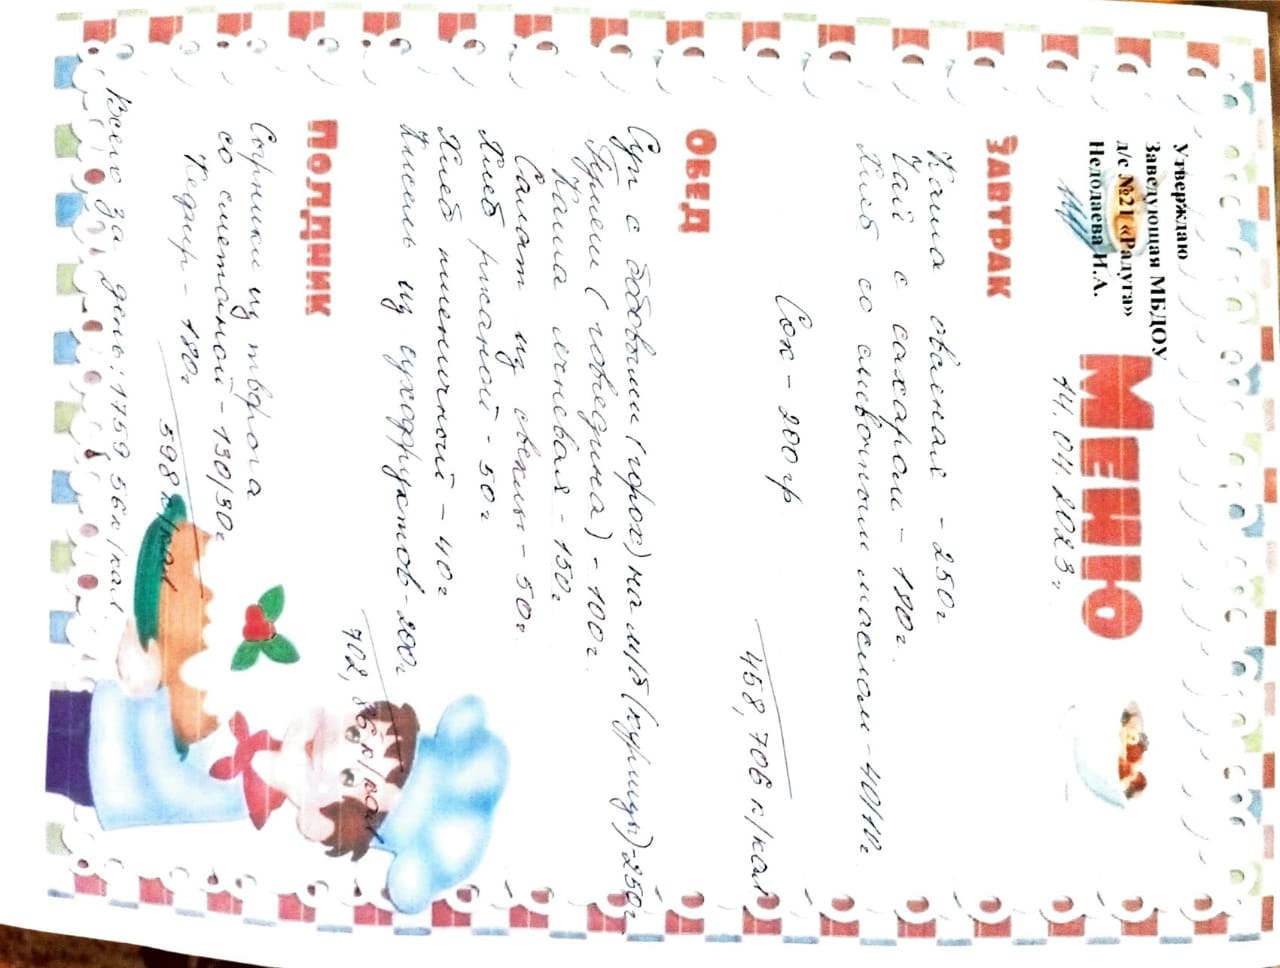 Утверждаю
Заведующая МБДОУ
д/с №21 «Радуга»
Недодаева И.А.
Меню
14.04.2023г
Завтрак
Каша овсяная - 250г
Чай с сахаром - 180г.
Хлеб со сливочным маслом - 40/10г
Сок - 200гр
458,706 к/кал
Обед
Суп с бобовыми (горох) на м/б (курицы) - 250г
Гуляш (говядина) - 100г.
Каша ячневая - 150г
Салат из свеклы - 50г.
Хлеб ржаной - 50г
Хлеб пшеничный - 40г
Кисель из сухофруктов - 200г
702,86 к/кал
Полдник
Сырники из творога
со сметаной - 130/30г
Кефир - 180г
598 к/кал
Всего за день: 1759,56 к/кал.